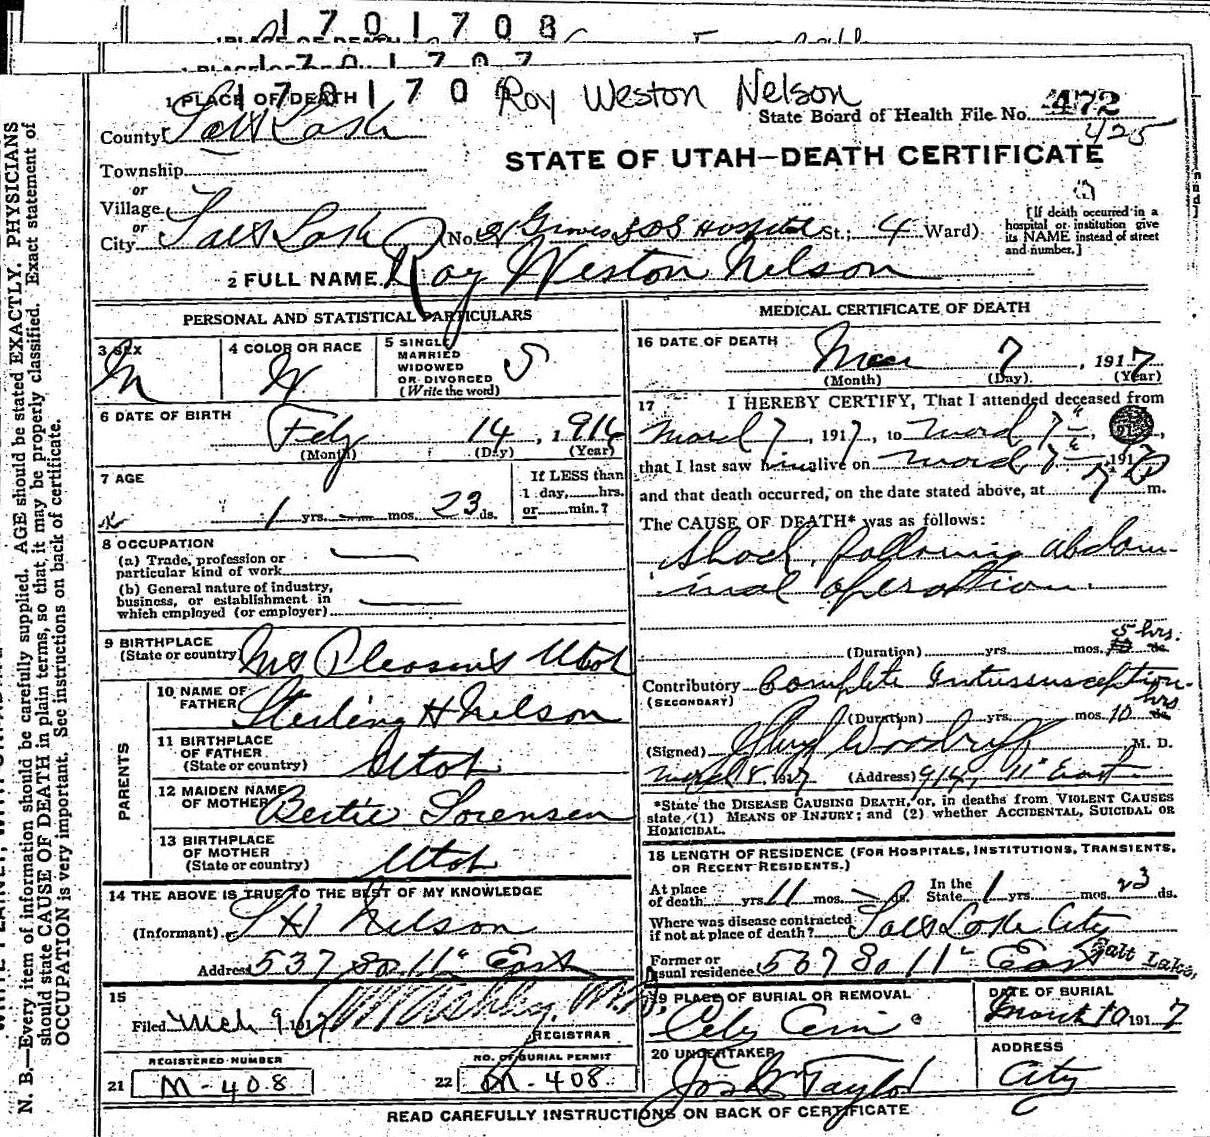 1 7 0 1 7 0 8
1 PLACE OF DEATH
1 7 0 1 7 0 7
1 PLACE OF DEATH
1 7 0 1 7 0 Roy Weston Nelson
State Board of Health File No. 472
425
County Salt Lake
STATE OF UTAH—DEATH CERTIFICATE
Township
or
Village
or
City Salt Lake (No. Dr Groves LDS Hospital St.; 4 Ward)
[If death occurred in a hospital or institution give its NAME instead of street and number.]
2 FULL NAME Roy Weston Nelson
PERSONAL AND STATISTICAL PARTICULARS
3 SEX M
4 COLOR OR RACE W
5 SINGLE MARRIED WIDOWED OR DIVORCED (Write the word) S
6 DATE OF BIRTH Feby 14, 1916
(Month) (Day) (Year)
7 AGE
If LESS than 1 day, hrs. or min.?
1 yrs. — mos. 23 ds.
8 OCCUPATION
(a) Trade, profession or particular kind of work
(b) General nature of industry, business, or establishment in which employed (or employer)
9 BIRTHPLACE (State or country) Mt Pleasant Utah
PARENTS
10 NAME OF FATHER Sterling H Nelson
11 BIRTHPLACE OF FATHER (State or country) Utah
12 MAIDEN NAME OF MOTHER Bertie Sorensen
13 BIRTHPLACE OF MOTHER (State or country) Utah
14 THE ABOVE IS TRUE TO THE BEST OF MY KNOWLEDGE
(Informant) S H Nelson
Address 537 So. 11" East
15
Filed Mch 9 1917
REGISTRAR
REGISTERED NUMBER
21 M-408
NO. OF BURIAL PERMIT
22 M-408
MEDICAL CERTIFICATE OF DEATH
16 DATE OF DEATH Mar 7, 1917
(Month) (Day) (Year)
17 I HEREBY CERTIFY, That I attended deceased from
March 7, 1917, to March 7
that I last saw him alive on March 7 1917
and that death occurred, on the date stated above, at 7 m.
The CAUSE OF DEATH* was as follows:
Shock following abdom-
inal operation.
(Duration) yrs. mos. 5 hrs.
Contributory (SECONDARY) Complete Intussusception
(Duration) yrs. mos. 10 hrs
(Signed) Woodruff M. D.
March 8 1917 (Address) 914, 11" East
*State the DISEASE CAUSING DEATH, or, in deaths from VIOLENT CAUSES
state (1) MEANS OF INJURY; and (2) whether ACCIDENTAL, SUICIDAL OR
HOMICIDAL.
18 LENGTH OF RESIDENCE (FOR HOSPITALS, INSTITUTIONS, TRANSIENTS,
OR RECENT RESIDENTS.)
At place of death yrs. 11 mos. ds. In the State 1 yrs. mos. 23 ds.
Where was disease contracted if not at place of death? Salt Lake City
Former or usual residence 537 So 11" East Salt Lake,
19 PLACE OF BURIAL OR REMOVAL City Cem
DATE OF BURIAL March 10 1917
20 UNDERTAKER Jos Wm Taylor
ADDRESS City
READ CAREFULLY INSTRUCTIONS ON BACK OF CERTIFICATE
N. B.—Every item of information should be carefully supplied. AGE should be stated EXACTLY. PHYSICIANS
should state CAUSE OF DEATH in plain terms, so that it may be properly classified. Exact statement of
OCCUPATION is very important. See instructions on back of certificate.